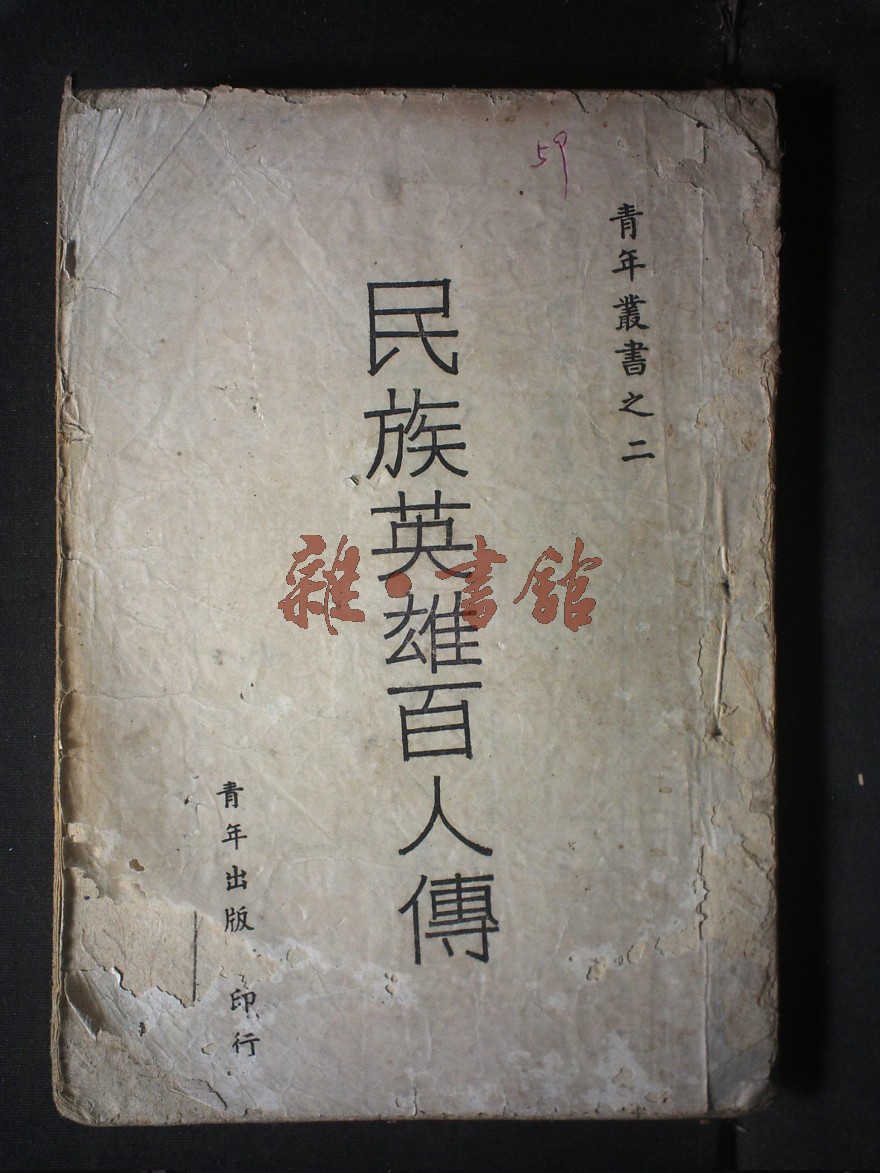 59
青年叢書之二
民族英雄百人傳
青年出版 印行
雜·書館